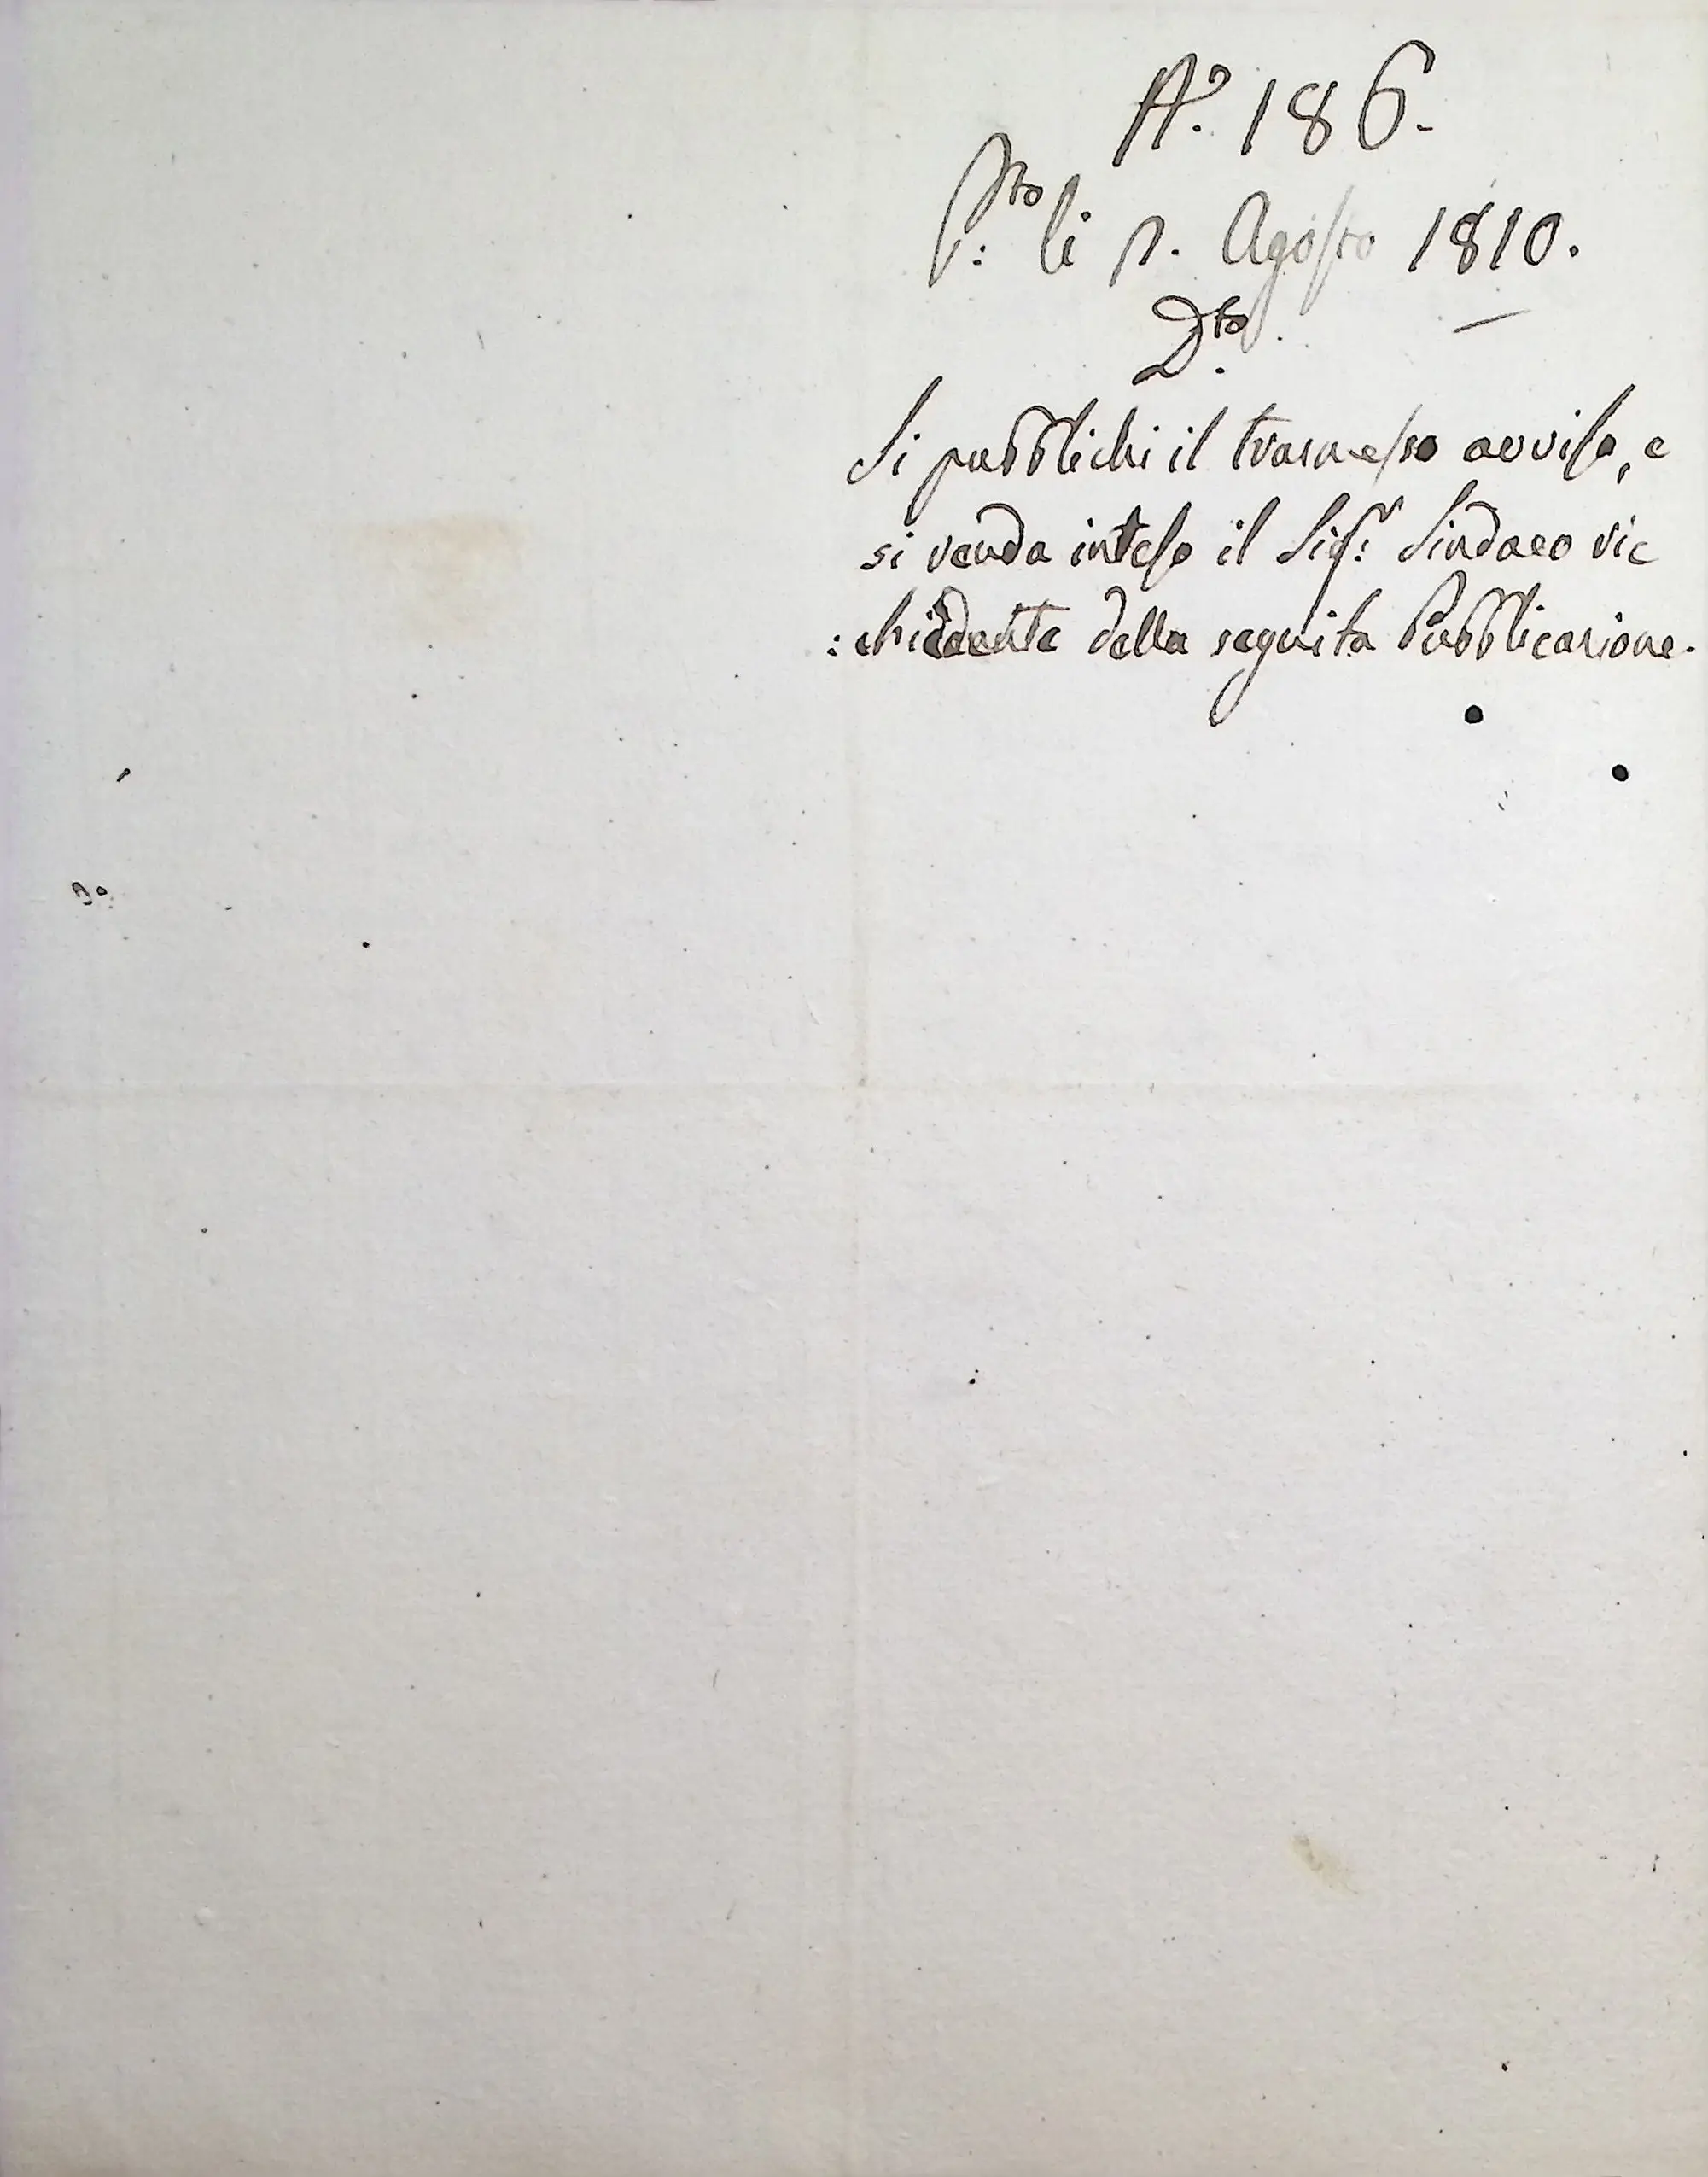 A.º 186.
P.to li 1. Agosto 1810.
D.to
Si pubblichi il trasmesso avviso, e
si renda inteso il Sig.r Sindaco ric
:chiedente della seguita Pubblicazione.